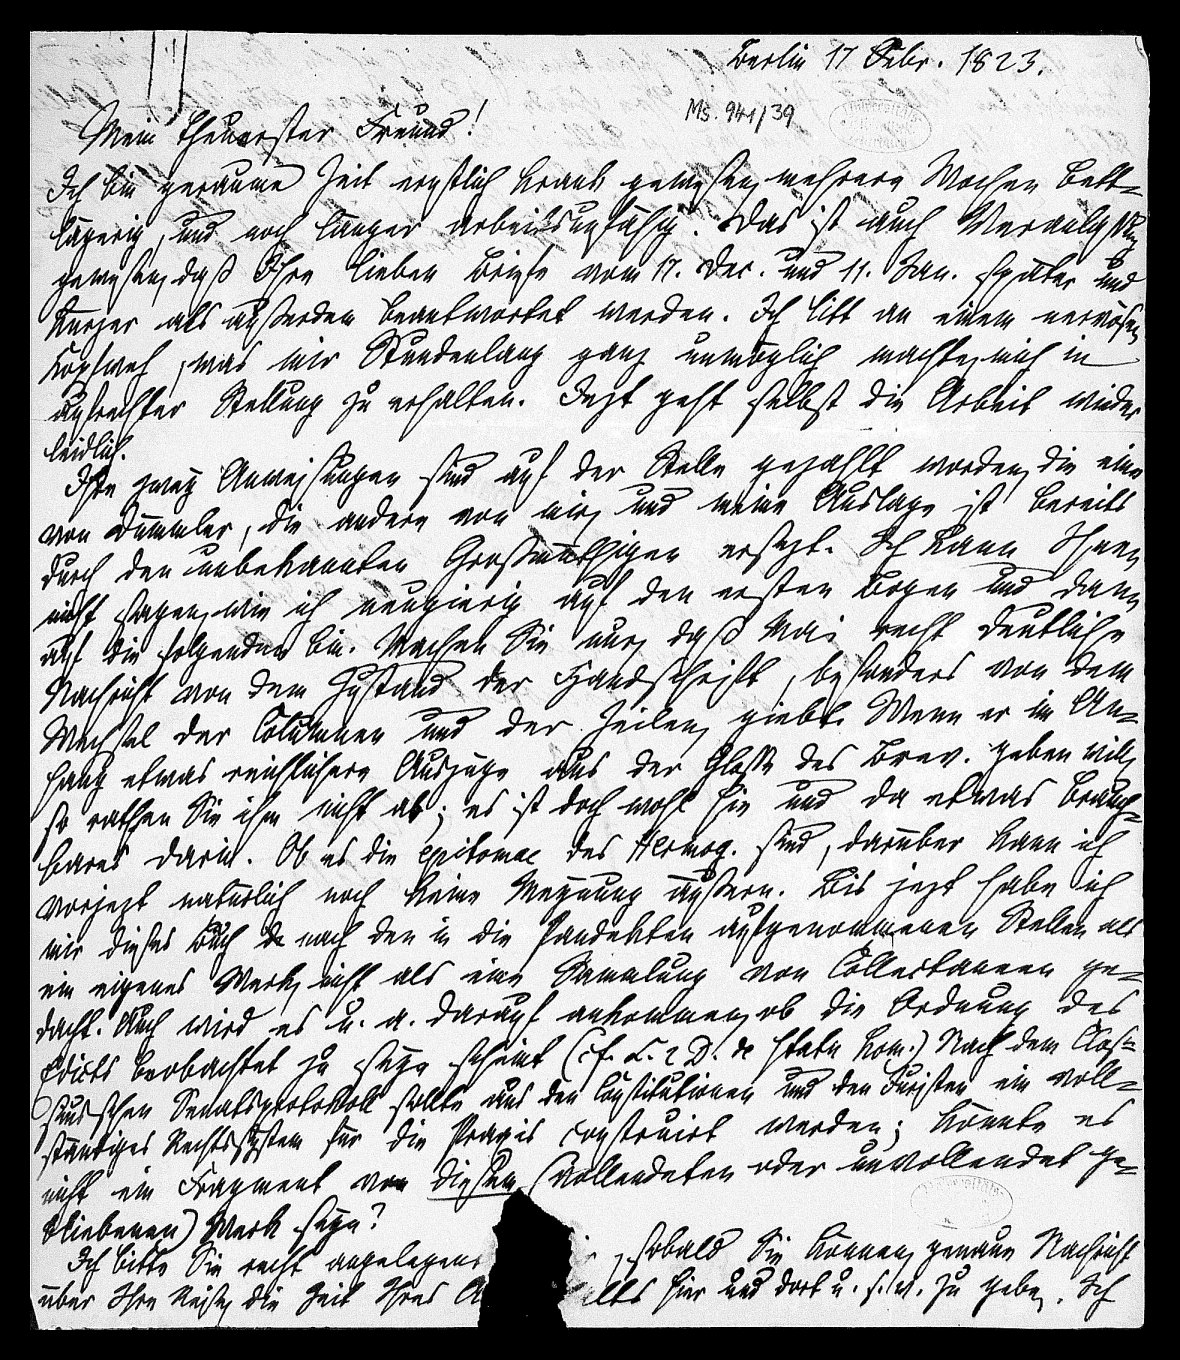 Berlin 17 Febr. 1823.
Ms. 941/39
Mein theuerster Freund!
Ich bin geraume Zeit ernstlich krank gewesen, mehrere Wochen bett-
lägerig, und noch länger arbeitsunfähig. Das ist auch Veranlassung
gewesen, daß Ihre lieben Briefe vom 17. Dec. und 11. Jan. später und
kürzer als außerdem beantwortet werden. Ich litt an einem nervösen
Kopfweh, was mir Stundenlang ganz unmöglich machte, mich in
aufrechter Stellung zu erhalten. Jezt geht selbst die Arbeit wieder
leidlich.
Ihre zwey Anweisungen sind auf der Stelle gezahlt worden, die eine
von Dümmler, die andere von mir, und meine Auslage ist bereits
durch den unbekannten Großmüthigen ersezt. Ich kann Ihnen
nicht sagen, wie ich neugierig auf den ersten Bogen und dann
auf die folgenden bin. Machen Sie nur, daß Mai recht deutliche
Nachricht von dem Zustand der Handschrift, besonders von dem
Wechsel der Columnen und der Zeilen, giebt. Wenn er im An-
hang etwas reichlichere Auszüge aus der Glosse des Brev. geben will,
so rathen Sie ihm nicht ab; es ist doch wohl hie und da etwas brauch-
bares darin. Ob es die epitomae des Hermog. sind, darüber kann ich
vorjezt natürlich noch keine Meynung äußern. Bis jezt habe ich
mir dieses Buch nach den in die Pandekten aufgenommenen Stellen als
ein eigenes Werk, nicht als eine Sammlung von Collectaneen ge-
dacht. Auch wird es u. a. darauf ankommen, ob die Ordnung des
Edicts beobachtet zu seyn scheint (cf. L. 2 D. de statu hom.) Nach dem Clos-
siusschen Senatsprotokoll sollte aus den Constitutionen und den Juristen ein voll-
ständiges Rechtssystem für die Praxis construirt werden; könnte es
nicht ein Fragment von diesem (vollendeten oder unvollendet ge-
bliebenen) Werk seyn?
Ich bitte Sie recht angelegen sobald Sie können, genaue Nachricht
über Ihre Reise, die Zeit Ihres A lts hier und dort u. s. w. zu geben. Ich